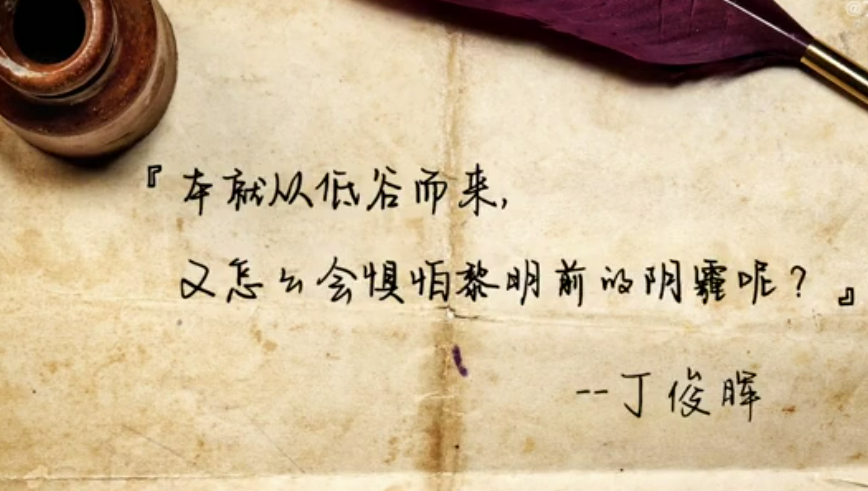 『本就从低谷而来,
又怎么会惧怕黎明前的阴霾呢？』
--丁俊晖